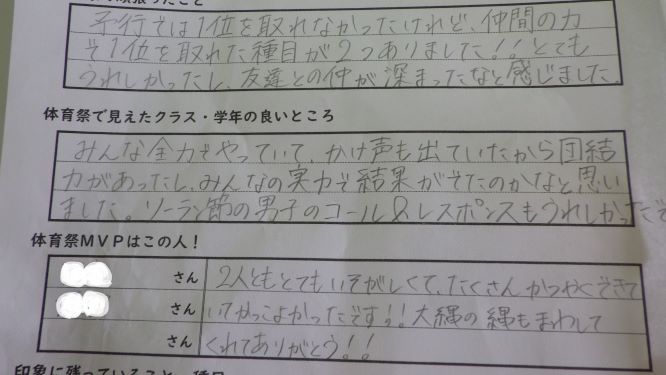 予行では1位を取れなかったけれど、仲間の力
で1位を取れた種目が2つありました!!とても
うれしかったし、友達との仲が深まったなと感じました。
体育祭で見えたクラス・学年の良いところ
みんな全力でやっていて、かけ声も出ていたから団結
力があったし、みんなの実力で結果がでたのかなと思い
ました。ソーラン節の男子のコール&レスポンスもうれしかったで
体育祭MVPはこの人!
さん 2人ともとてもいそがしくて、たくさんかつやくできて
さん いてかっこよかったです!!大縄の縄もまわして
さん くれてありがとう!!